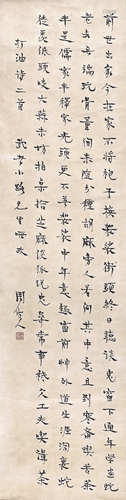 前世出家今在家不將袍子換袈裟街頭終日聽談鬼窗下通年學畫蛇
老去無端玩骨董閑來隨分種胡麻旁人若問其中意且到寒齋喫苦茶
半是儒家半釋家光頭更不著袈裟中年意趣窗前草外道生涯洞裏蛇
徒羨低頭咬大蒜未妨拍桌拾芝麻談狐說鬼尋常事祇欠工夫喫講茶
打油詩二首
先生哂政
周作人